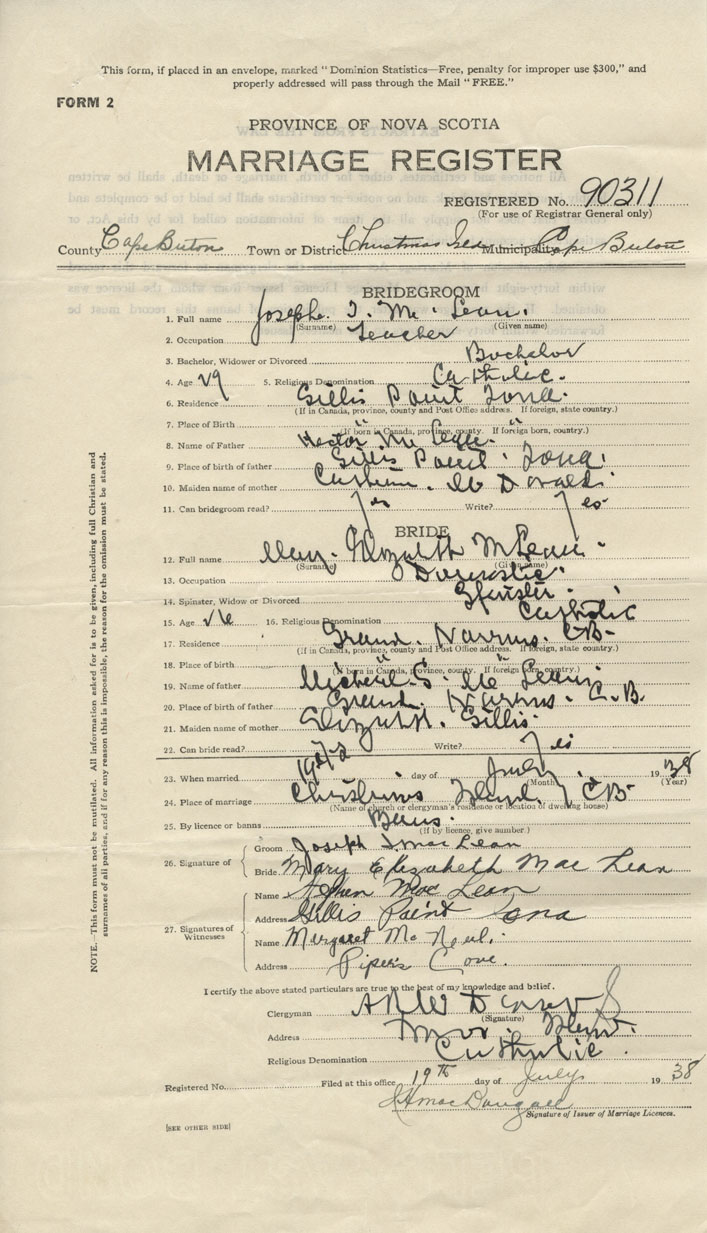 This form, if placed in an envelope, marked "Dominion Statistics—Free, penalty for improper use $300," and
properly addressed will pass through the Mail "FREE."
FORM 2
PROVINCE OF NOVA SCOTIA
MARRIAGE REGISTER
REGISTERED No. 90311
(For use of Registrar General only)
County Cape Breton Town or District Christmas Isld Municipality Cape Breton
BRIDEGROOM
1. Full name Joseph. Mc Lean.
(Surname) (Given name)
2. Occupation Teacher
3. Bachelor, Widower or Divorced Bachelor
4. Age 29 5. Religious Denomination Catholic.
6. Residence Gillis Point Iona.
(If in Canada, province, county and Post Office address. If foreign, state country.)
7. Place of Birth " "
(If born in Canada, province, county. If foreign born, country.)
8. Name of Father Hector Mc Lean.
9. Place of birth of father Gillis Point. Iona.
10. Maiden name of mother Mc Donald.
11. Can bridegroom read? Yes Write? Yes
BRIDE
12. Full name Mary. Elizabeth McLean.
(Surname) (Given name)
13. Occupation Domestic
14. Spinster, Widow or Divorced Spinster.
15. Age 26 16. Religious Denomination Catholic
17. Residence Grand. Narrows. C-B-
(If in Canada, province, county and Post Office address. If foreign, state country.)
18. Place of birth " "
(If born in Canada, province, county. If foreign born, country.)
19. Name of father Michael S. Mc Lean
20. Place of birth of father Grand. Narrows. C.B.
21. Maiden name of mother Elizabeth. Gillis.
22. Can bride read? Yes Write? Yes
23. When married day of July 1938
(Month) (Year)
24. Place of marriage Christmas Island, CB-
(Name of church or clergyman's residence or location of dwelling house)
25. By licence or banns Banns.
(If by licence, give number.)
26. Signature of
Groom Joseph MacLean
Bride Mary Elizabeth Mac Lean
27. Signatures of Witnesses
Name Stephen Mac Lean
Address Gillis Point Iona
Name Margaret Mc Neil.
Address Piper's Cove.
I certify the above stated particulars are true to the best of my knowledge and belief.
Clergyman
(Signature)
Address
Religious Denomination Catholic.
Registered No. Filed at this office 19th day of July 1938
MacDougall
Signature of Issuer of Marriage Licences.
[SEE OTHER SIDE]
NOTE.—This form must not be mutilated. All information asked for is to be given, including full Christian and
surnames of all parties, and if for any reason this is impossible, the reason for the omission must be stated.